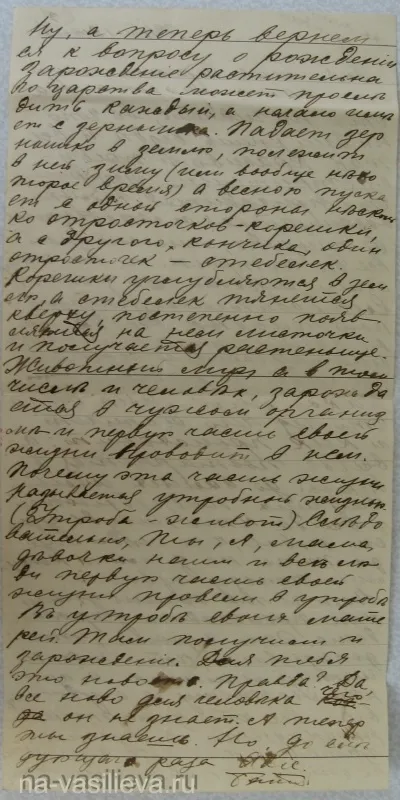 Ну, а теперь вернем
ся к вопросу о рожденiи
Зарожденiе растительна
го царства может прослѣ
дить каждый, а начало идет
ет с зернышка. Падает зер
нышко в землю, полежит
в ней зиму (или вообще нѣко
торое время) а весною пуска
ет с одной стороны нѣсколь
ко отросточков - корешки,
а с другого, кончика, один
отросточек - стебелек.
Корешки углубляются в зем
лю, а стебелек тянется
кверху, постепенно появ
ляются на нем листочки
и получается растеньице.
Животный мiр, а в том
числѣ и человѣк, зарожда
ется в чужом организ
мѣ и первую часть своей
жизни проводит в нем.
Почему эта часть жизни
называется утробной жизнью
(Утроба - живот) Слѣдо
вательно, ты, я, мама,
дѣвочки наши и всѣ лю
ди первую часть своей
жизни провели в утробѣ
Въ утробѣ своих мате
рей. Там получили и
зарожденiе. Для тебя
это новость. Правда? Да,
все ново для человѣка
он не знает. А теперь
ты знаешь. Но до слѣ
дующаго раза
на-vasilieva.ru